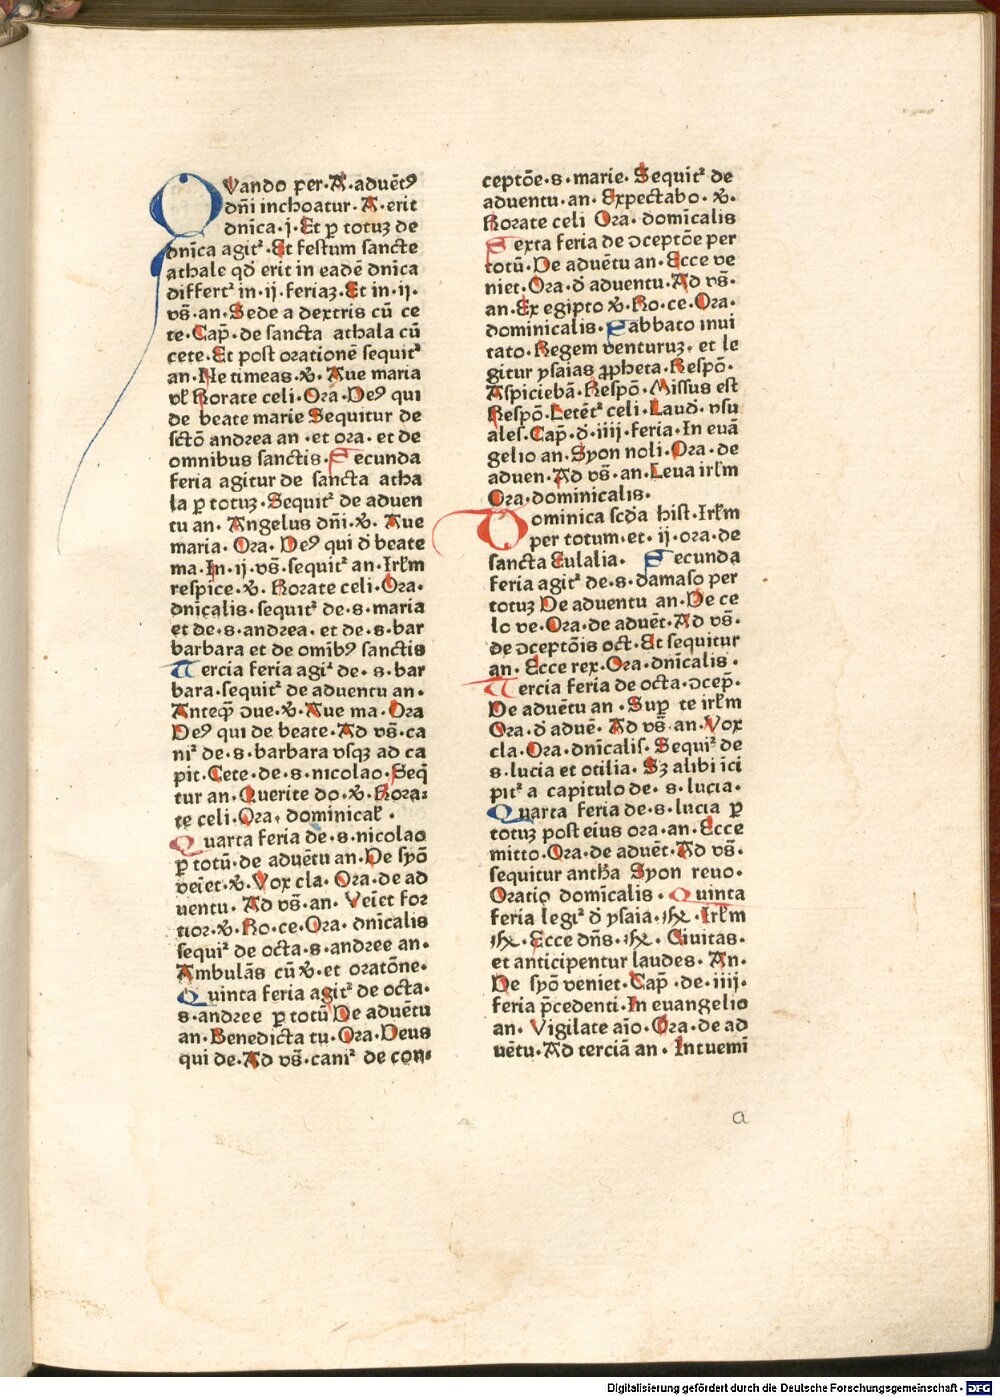 QVando per·A·aduēt⁹
dn̄i inchoatur·A·erit
dn̄ica·j·Et ꝑ totuꝫ de
dn̄ica agitᷣ·Et festum sancte
athale qd̄ erit in eadē dn̄ica
differtᷣ in·ij·feriaꝫ·Et in·ij·
vs̄·an·Sede a dextris cū ce
te·Cap̄·de sancta athala cū
cete·Et post orationē sequitᷣ
an·Ne timeas·℣·Aue maria
vł Rorate celi·Ora·De⁹ qui
de beate marie Sequitur de
sctō andrea an·et ora·et de
omnibus sanctis·Secunda
feria agitur de sancta atha
la ꝑ totuꝫ·Sequitᷣ de aduen
tu an·Angelus dn̄i·℣·Aue
maria·Ora·De⁹ qui d̄ beate
ma·In·ij·vs̄·sequitᷣ an·Irłm
respice·℣·Rorate celi·Ora·
dn̄icalis·sequitᷣ de·s·maria
et de·s·andrea·et de·s·bar
barbara et de omīb⁹ sanctis
Tercia feria agiᷣ de·s·bar
bara·sequitᷣ de aduentu an·
Anteqͫ ꝯue·℣·Aue ma·Ora
De⁹ qui de beate·Ad vs̄·ca
niᷣ de·s·barbara vsqꝫ ad ca
pit·Cete·de·s·nicolao·Seq̄
tur an·Querite do·℣·Rora⸗
te celi·Ora·dominicał·
Quarta feria de·s·nicolao
ꝑ totū·de aduētu an·De syō
veīet·℣·Vox cla·Ora·de ad
uentu·Ad vs̄·an·Veīet for
tior·℣·Ro·ce·Ora·dn̄icalis
sequiᷣ de octa·s·andree an·
Ambulās cū ℣·et oratōne·
Quinta feria agitᷣ de octa·
s·andree ꝑ totū De aduētu
an·Benedicta tu·Ora·Deus
qui de·Ad vs̄·caniᷣ de con⸗
ceptōe·s·marie·Sequitᷣ de
aduentu·an·Expectabo·℣·
Rorate celi Ora·domīcalis
Sexta feria de ꝯceptōe per
totū·De aduētu an·Ecce ve
niet·Ora·d̄ aduentu·Ad vs̄·
an·Ex egipto ℣·Ro·ce·Ora·
dominicalis·Sabbato inui
tato·Regem venturuꝫ·et le
gitur ysaias ꝓpheta·Respō·
Aspiciebā·Respō·Missus est
Respō·Letētᷣ celi·Laud·vsu
ales·Cap̄·d̄·iiij·feria·In euā
gelio an·Syon noli·Ora·de
aduen·Ad vs̄·an·Leua irłm
Ora·dominicalis·
Dominica scd̄a hist·Irłm
per totum·et·ij·ora·de
sancta Eulalia· Secunda
feria agitᷣ de·s·damaso per
totuꝫ De aduentu an·De ce
lo ve·Ora·de aduēt·Ad vs̄·
de ꝯceptōis oct·Et sequitur
an·Ecce rex·Ora·dn̄icalis·
Tercia feria de octa·ꝯcep̄·
De aduētu an·Suꝑ te irłm
Ora·d̄ aduē·Ad vs̄·an·Vox
cla·Ora·dn̄icalis·Sequiᷣ de
s·lucia et otilia·Sꝫ alibi īci
pitᷣ a capitulo de·s·lucia·
Quarta feria de·s·lucia ꝑ
totuꝫ post eius ora·an·Ecce
mitto·Ora·de aduēt·Ad vs̄·
sequitur antħa Syon reuo·
Oratio domīcalis·Quinta
feria legiᷣ d̄ ysaia·℟·Irłm
℟·Ecce dn̄s·℟·Ciuitas·
et anticipentur laudes·An·
De syō veniet·Cap̄·de·iiij·
feria p̄cedenti·In euangelio
an·Vigilate aīo·Ora·de ad
uētu·Ad terciā an·Intuemī
a
Digitalisierung gefördert durch die Deutsche Forschungsgemeinschaft - DFG